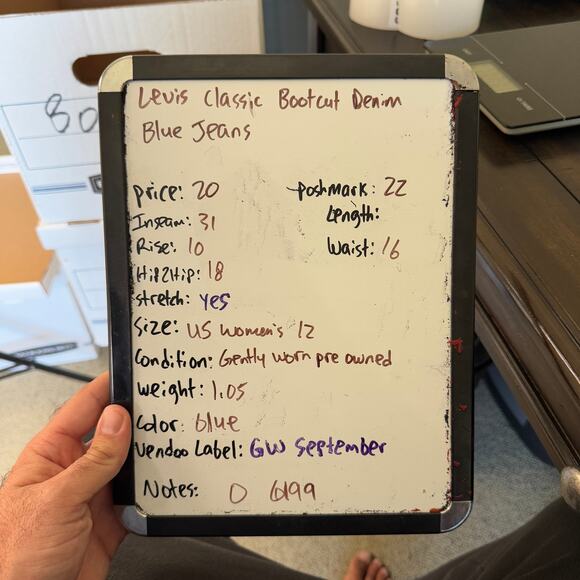 Levis Classic Bootcut Denim
Blue Jeans
price: 20
poshmark: 22
Inseam: 31
Length:
Rise: 10
Waist: 16
Hip2Hip: 18
stretch: yes
Size: US Women's 12
Condition: Gently worn pre owned
weight: 1.05
Color: blue
Vendoo Label: GW September
Notes: